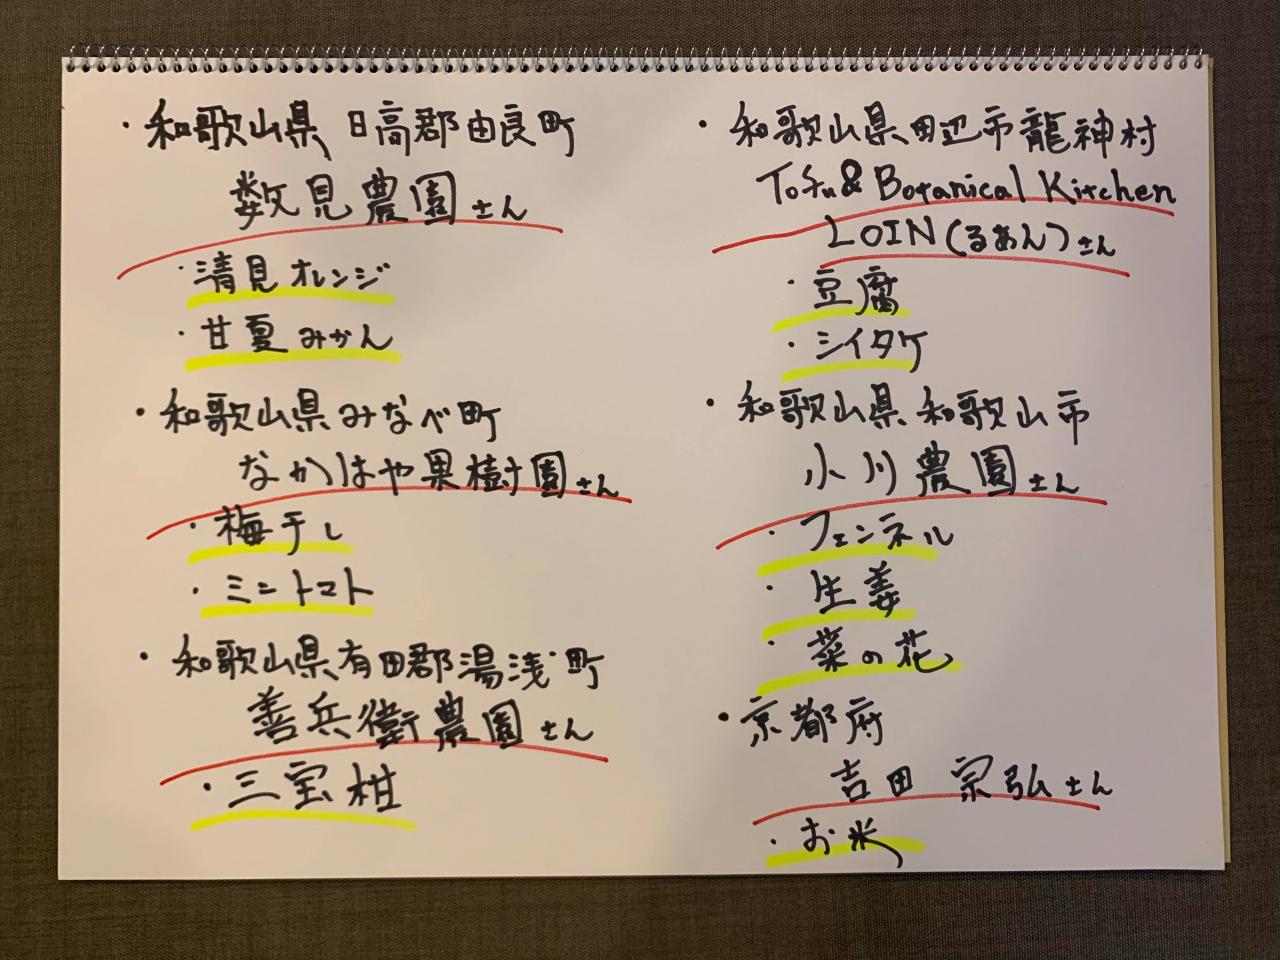 ・和歌山県 日高郡由良町
数見農園さん
・清見オレンジ
・甘夏みかん
・和歌山県みなべ町
なかはや果樹園さん
・梅干し
・ミニトマト
・和歌山県有田郡湯浅町
善兵衛農園さん
・三宝柑
・和歌山県田辺市龍神村
Tofu & Botanical Kitchen
LOIN(るあん)さん
・豆腐
・シイタケ
・和歌山県 和歌山市
小川農園さん
・フェンネル
・生姜
・菜の花
・京都府
吉田 宗弘さん
・お米